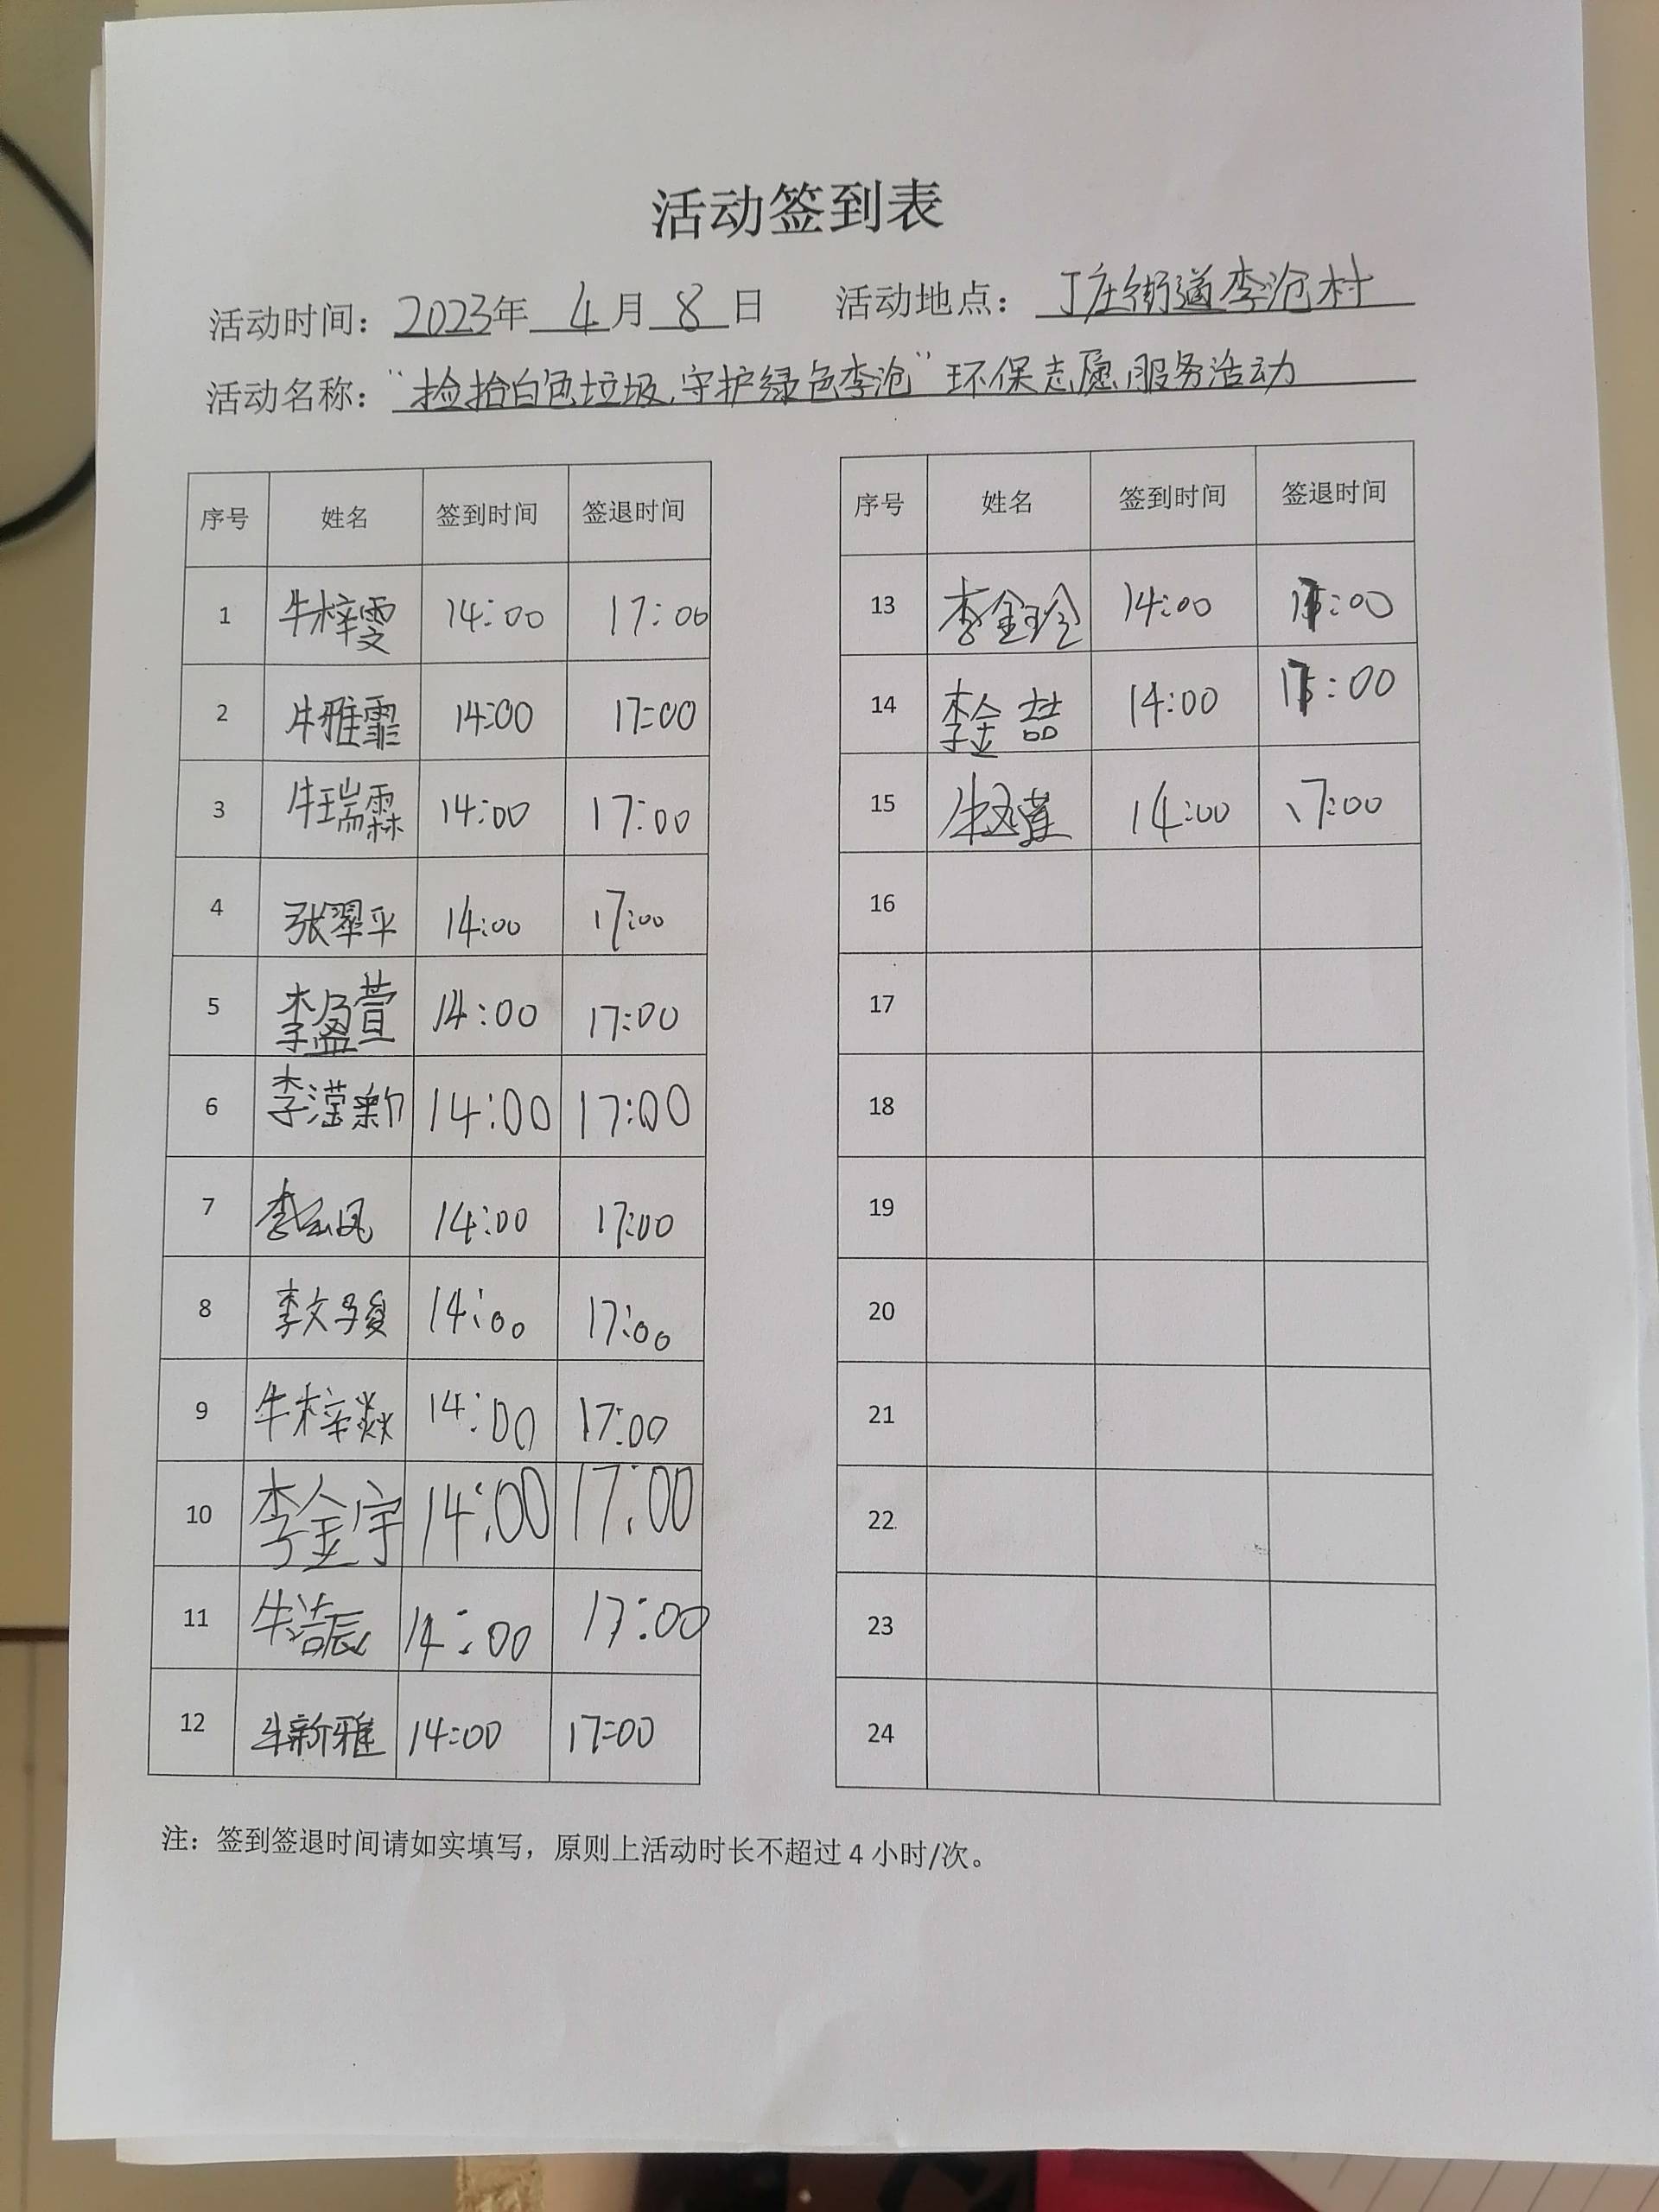 活动签到表
活动时间：2023年 4月 8日 活动地点：丁庄街道李沧村
活动名称："捡拾白色垃圾,守护绿色李沧"环保志愿服务活动
序号 姓名 签到时间 签退时间
1 牛梓雯 14:00 17:00
2 牛雅霏 14:00 17:00
3 牛瑞霖 14:00 17:00
4 张翠平 14:00 17:00
5 李盈萱 14:00 17:00
6 李滢新 14:00 17:00
7 李云凤 14:00 17:00
8 李文 14:00 17:00
9 牛梓焱 14:00 17:00
10 李金宇 14:00 17:00
11 牛浩辰 14:00 17:00
12 牛新雅 14:00 17:00
序号 姓名 签到时间 签退时间
13 李金玲 14:00 17:00
14 李金喆 14:00 17:00
15 14:00 17:00
16
17
18
19
20
21
22
23
24
注：签到签退时间请如实填写，原则上活动时长不超过 4 小时/次。